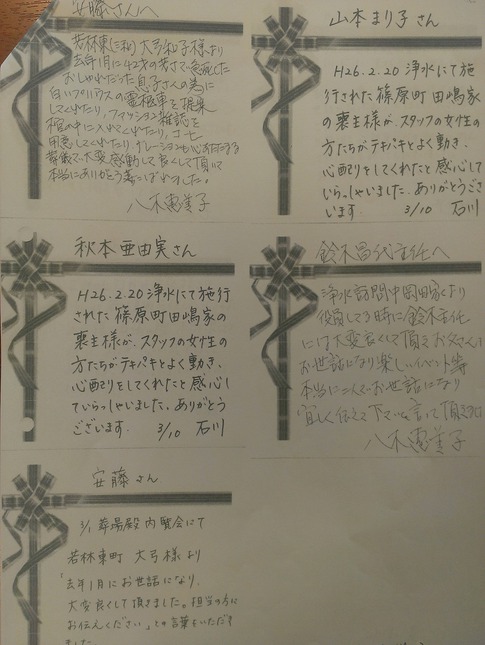 安藤さんへ
若林東に和 大弓和子様より
去年1月に42才の若さで急死した
おしゃれだった息子さんの為に
白いアルハウスの霊柩車を提案
してくれたり、ファッション雑誌を
棺の中に入れてくれたり、コーヒー
用意してくれたり、ナレーションも心あたたまる
葬儀で、大変感動して良くして頂いて
本当にありがとう
八木恵美子
山本まり子さん
H26.2.20 浄水にて施
行された篠原町田嶋家
の喪主様が、スタッフの女性の
方たちがテキパキとよく動き、
心配りをしてくれたと感心して
いらっしゃいました。ありがとうござ
います。 3/10 石川
秋本亜由実さん
H26.2.20 浄水にて施行
された篠原町田嶋家の
喪主様が、スタッフの女性の
方たちがテキパキとよく動き、
心配りをしてくれたと感心し
ていらっしゃいました。ありがとう
ございます。 3/10 石川
鈴木昌代主任へ
浄水訪問中岡田家より
役員してる時に鈴木主任
には大変良くして頂き お父さんも
お世話になり楽しいイベント等
本当に お世話になり
宜しく伝えて下さいと言って頂きました
八木恵美子
安藤さん
3/1 葬場殿内覧会にて
若林東町 大弓様より
「去年1月にお世話になり、
大変良くして頂きました。担当の方に
お伝えください」との言葉をいただき
ました